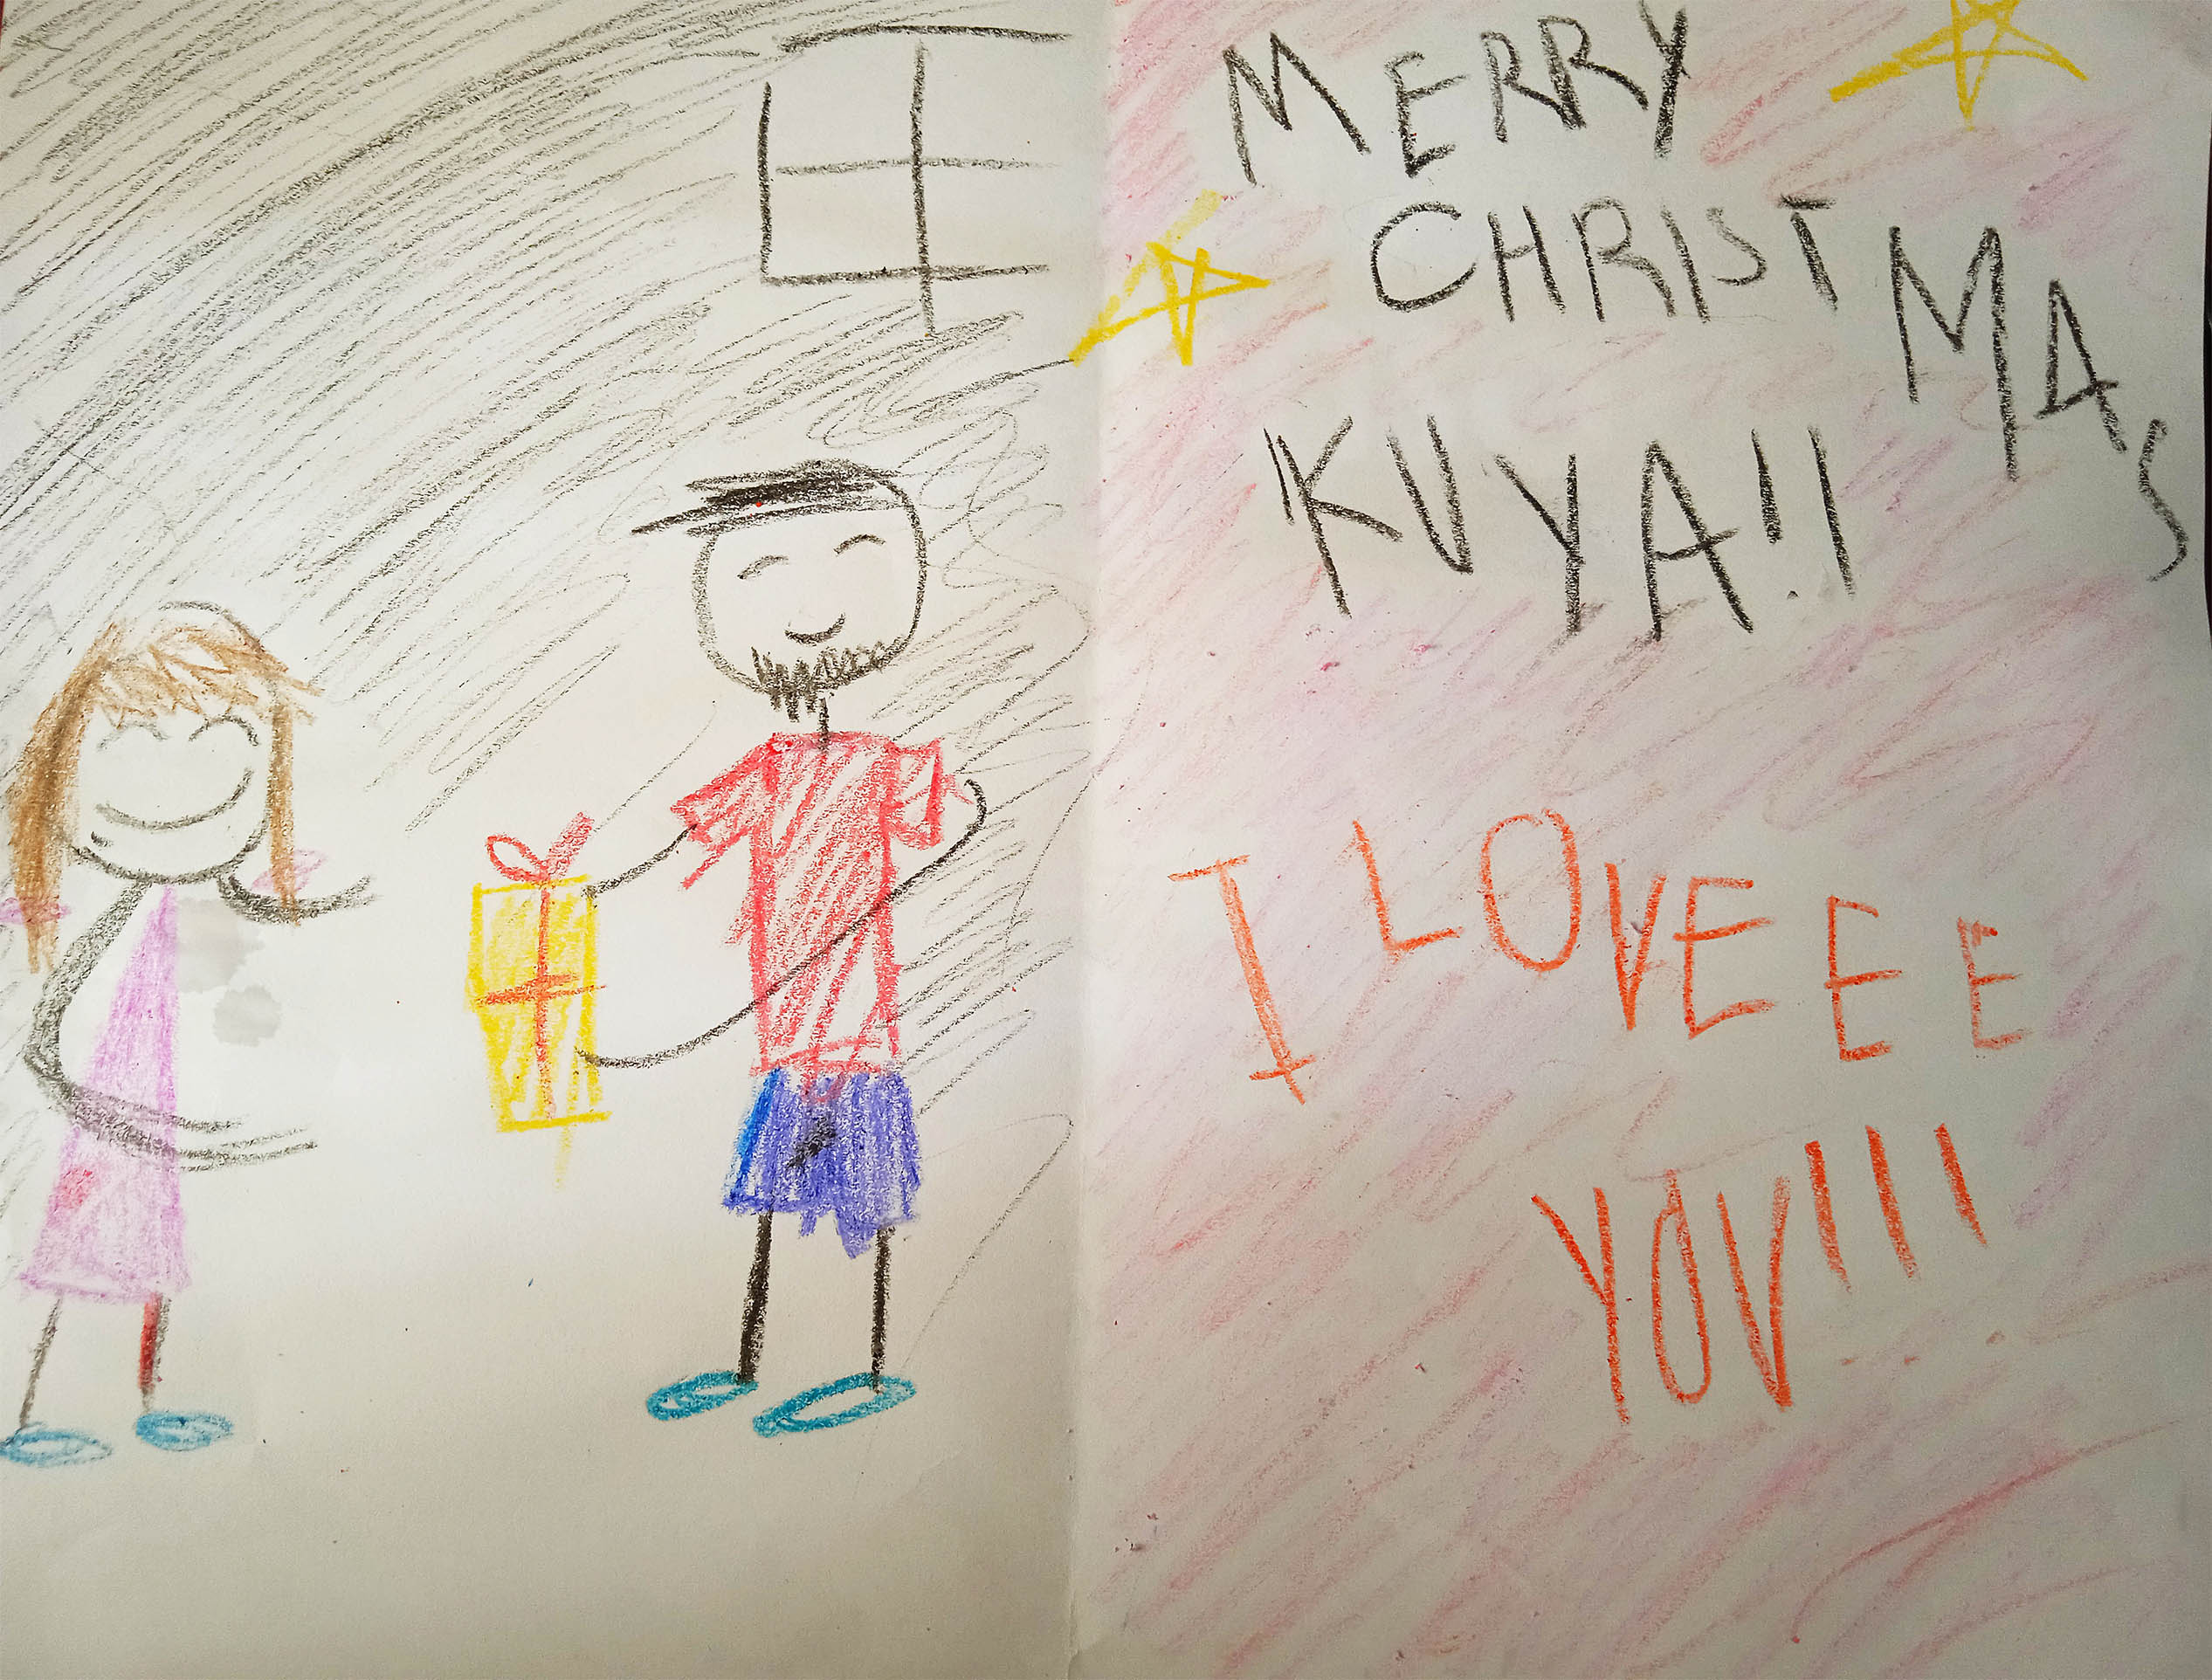 MERRY
CHRISTMAS
KUYA!!
I LOVEEE
YOU!!!